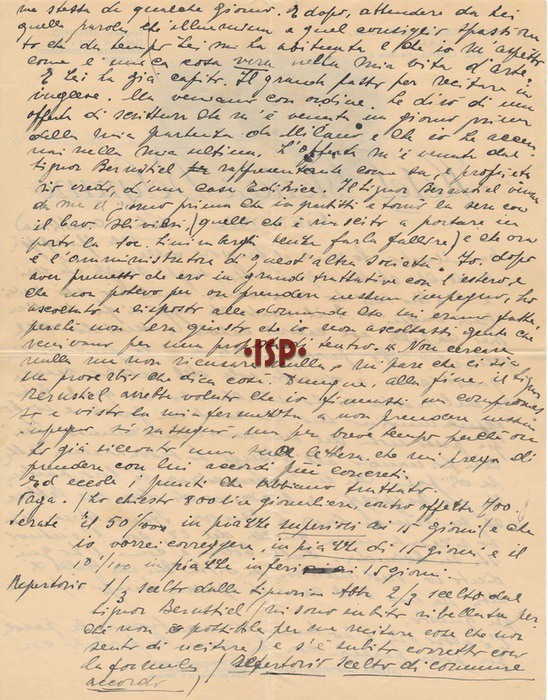 me stessa di qualche giorno. E dopo, attendere da Lei
quelle parole che illuminano e quel consiglio spassiona
to che da tempo Lei mi ha abituata e che io m'aspetto
come l'unica cosa vera nella mia vita d'arte.
E Lei ha già capito. Il grande fatto per recitare in
inglese. Ma veniamo con ordine. Le dirò di una
offerta di scrittura che m'è venuta un giorno prima
della mia partenza da Milano e che io Le accen
nai nella mia ultima. L'offerta m'è venuta dal
Signor Bernstiel rappresentante come sa, e proprieta
rio credo, d'una casa Editrice. Il Signor Bernstiel venne
da me il giorno prima che io partissi e tornò la sera con
il Cav. (quello che è riuscito a portare in
porto la Soc. senza farla fallire) e che ora
è l'amministratore di quest'altra società. Io, dopo
aver premesso che ero in grande trattative con l'estero, e
che non potevo per ora prendere nessun impegno, ho
ascoltato e risposto alle domande che mi erano fatte
perché non era giusto che io non ascoltassi gente che
venivano per una di lavoro. Non cercare
nulla ma non ricusare nulla, mi pare che ci sia
un proverbio che dica così. Dunque, alla fine, il Signor
Bernstiel avrebbe voluto che io firmassi un compromes
so e visto la mia fermezza a non prendere nessun
impegno si rassegnò, ma per breve tempo perché ora
ho già ricevuto una sua lettera che mi prega di
prendere con lui accordi più concreti.
Ed eccole i punti che abbiamo trattato.
Paga. (Ho chiesto 800 lire giornaliere, contro offerta 700.
Serate Il 50/000 in piazze superiori ai 15 giorni (e che
io vorrei correggere, in piazze di 15 giorni e il
10%00 in piazze inferiori ai 15 giorni.
Repertorio 1/3 scelto dalla Signorina Abba 2/3 scelto dal
Signor Bernstiel (mi sono subito ribellata per
ché non è possibile per me recitare cose che non
sento di recitare) e s'è subito corretto con
la formula (Repertorio scelto di comune
accordo)
·ISP·